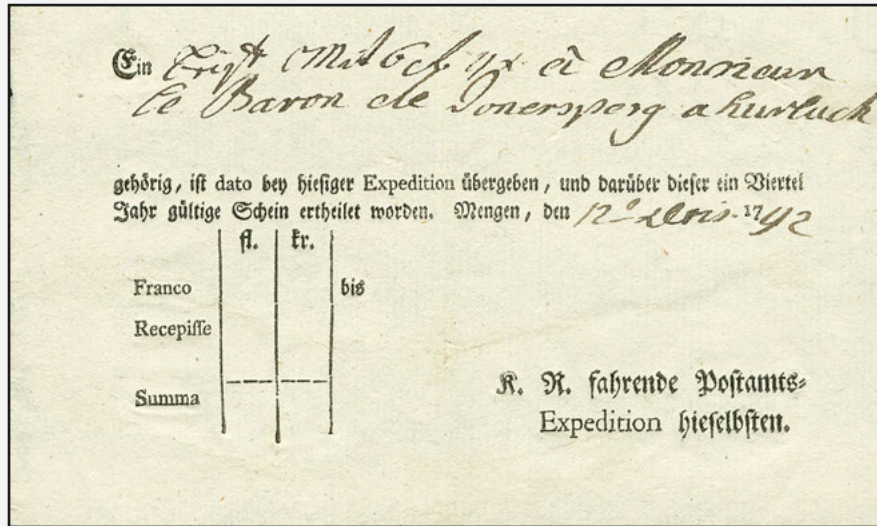 Ein à Monsieur
Le Baron de
gehörig, ist dato bey hiesiger Expedition übergeben, und darüber dieser ein Viertel
Jahr gültige Schein ertheilet worden. Mengen, den 12 1792
fl. kr.
Franco bis
Recepisse
Summa
K. R. fahrende Postamts-
Expedition hieselbsten.